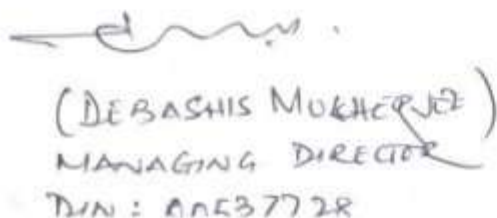 (DEBASHIS MUKHERJEE)
MANAGING DIRECTOR
DIN : 00537728